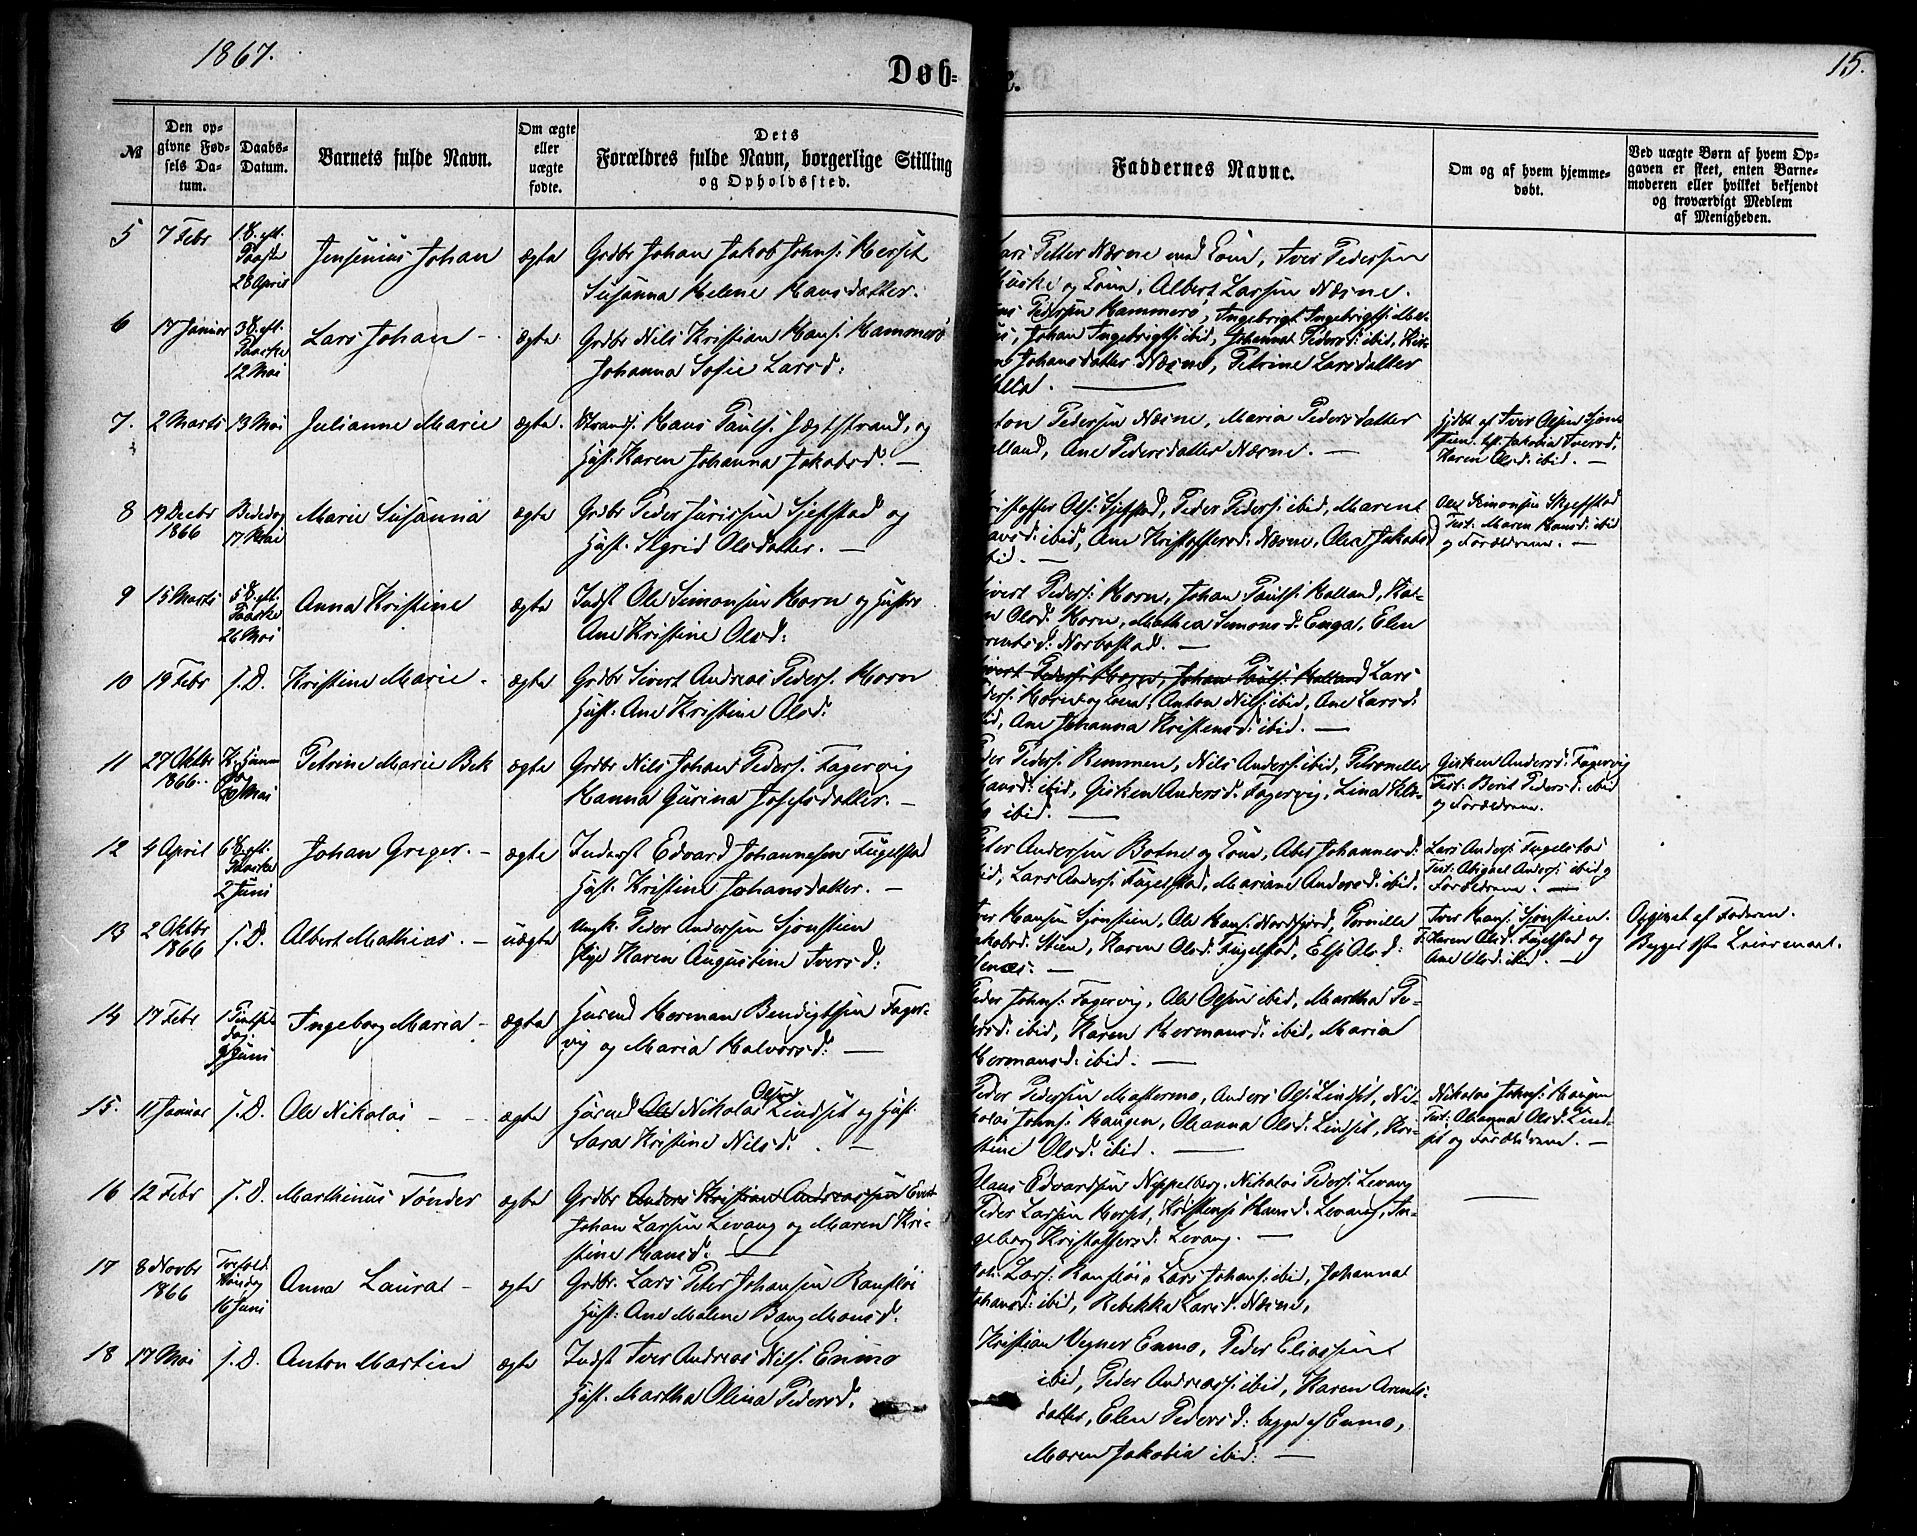 1867.
15.
Døb- e.
№
Den opgivne Fødsels Datum.
Daabs-Datum.
Barnets fulde Navn.
Om ægte eller uægte fødte.
Dets Forældres fulde Navn, borgerlige Stilling og Opholdssted.
Faddernes Navne.
Om og af hvem hjemmedøbt.
Ved uægte Børn af hvem Opgaven er skeet, enten Barnemoderen eller hvilket bekjendt og troværdigt Medlem af Menigheden.
5 7 Febr 1 S. eft. Paaske 28 April Jensenius Johan ægte Grdbr Johan Jakob Johns: Herset
Susanna Helene Hansdatter.
Petter Næsne med Kone, Iver Pedersen
og Kone, Albert Larsen Næsne.
6 17 Januar 3 S. eft. Paaske 12 Mai Lars Johan - ægte Grdbr Nils Kristian Hans: Hammerø
Johanna Sofie Larsd:
Pedersen Hammerø, Ingebrigt Ingebrigts:
Johan Ingebrigts: ibid, Johanna Pedersd: ibid,
Johansdatter Næsne, Petrine Larsdatter
7. 2 Marts 13 Mai Julianne Marie ægte. Strands. Hans Pauls: Jægtstrand, og
Hust. Karen Johanna Jakobsd. —
Pedersen Næsne, Maria Pedersdatter
Ane Pedersdatter Næsne. —
Hjdbt af Iver Olsen Sjøns
tien. Jakobia Iversd,
Karen Olsd: ibid. —
8 19 Decbr 1866 Bededag 17 Mai Marie Susanna ægte Grdbr Peder Jurissen Sjefstad og
Hust. Sigrid Olsdatter. —
Ols: Sjefstad, Peder Peders: ibid, Marent
Hansd: ibid, Ane Kristoffersd: Næsne, Olea Jakobsd
ibid. —
Ole Simonsen
Test. Maren Hansd: ibid
og Forældrene. —
9 15 Marts 5 S. eft. Paaske 26 Mai Anna Kristine ægte Indst Ole Simonsen Horn og Hustru
Ane Kristine Olsd:
Peders: Horn, Johan Pauls: Halland,
Olsd: Horn, Mathea Simonsd. Enga, Elen
Norbostad. —
10 19 Febr s. D. Kristine Marie - ægte Grdbr Sivert Andreas Peders. Horn
Hust: Ane Kristine Olsd:
Sivert Peders: Horn, Johan Pauls: Halland Lars
Peders. Horn og Kone, Anton Nils: ibid, Ane Larsd:
ibid, Ane Johanna Kristensd: ibid. —
11 27 Oktbr 1866. Kr. Himm. dag 30 Mai Petrine Marie Bek ægte Grdbr Nils Johan Peders. Fagervig
Hanna Gurina Josefsdatter. —
Peders. Remmen, Nils Anders: ibid, Petronelle
Hansd: ibid, Gisken Andersd. Fagervig, Lina
ibid. —
Gisken Andersd. Fagervig
Test. Berit Pedersd: ibid
og Forældrene.
12 4 April 6 S. eft. Paaske 2 Juni Johan Greger. - ægte Inderst Edvard Johannesen Fugelstad
Hust. Kristine Johansdatter. —
Peter Andersen Botne og Kone, Johannesd:
ibid, Lars Anders: Fugelstad, Mariane Andersd: ibid.
Lars Anders: Fugelstad
Test. Abigael Anders: ibid og
Forældrene. —
13 2 Oktbr 1866 s. D. Albert Mathias. - uægte Ungk. Peder Andersen Sjønstien
Pige Karen Augustine Iversd:
Iver Hansen Sjønstien, Ole Hans: Nordfjord, Pernille
Jakobsd. Stien, Karen Olsd: Fugelstad, Else Olsd:
Iver Hans: Sjønstien.
T: Karen Olsd. Fugelstad og
Ane Olsd: ibid. —
Opgivet af Faderen.
Begges 1ste Leiermaal.
14 17 Febr 1 Pintsedag 9 Juni Ingeborg Maria - ægte Husmd Herman Bendigtsen Fager-
vig og Maria Halvorsd: —
Peder Johns: Fagervig, Ole Olsen ibid, Martha Pe-
dersd: ibid, Karen Hermansd: ibid, Maria
Hermansd: ibid. —
15. 11 Januar s. D. Ole Nikolai - - ægte Husmd Ole Nikolai Olsen Lindset og Hust:
Sara Kristine Nilsd: —
Peder Pedersen Mastermo, Anders Ols: Lindset, Ni-
kolai Johns: Haugen, Olianna Olsd. Lindset, Kri-
stine Olsd: ibid. —
Nikolai Johns: Haugen
Test: Olianna Olsd. Lind-
set og Forældrene. —
16 12 Febr s. D. Marthinus Tønder ægte Grdbr Anders Kristian Andreassen Evert
Johan Larsen Levang og Maren Kri-
stine Hansd. —
Claus Edvardsen Neppelberg, Nikolai Peders. Levang
Peder Larsen Herset, Hansd. Levang, In-
geborg Kristoffersd: Levang. —
17 8 Novbr 1866 Trefold. Søndag 16 Juni Anna Laura - ægte Grdbr. Lars Peter Johansen Ranfløi
Hust: Ane Malene Bang Monsd.
Lars: Ranfløi, Lars Johans: ibid, Johanna
Johansd: ibid, Rebekka Larsd. Næsne,
18 17 Mai s. D. Anton Martin ægte Indst Iver Andreas Nils: Enmo
Hust. Martha Olina Pedersd.
Kristian Vegner Enmo, Peder Eliassen
ibid, Peder Andreas: ibid, Karen Arents-
datter, Elen Pedersd: begge af Enmo,
Maren Jakobia ibid: —